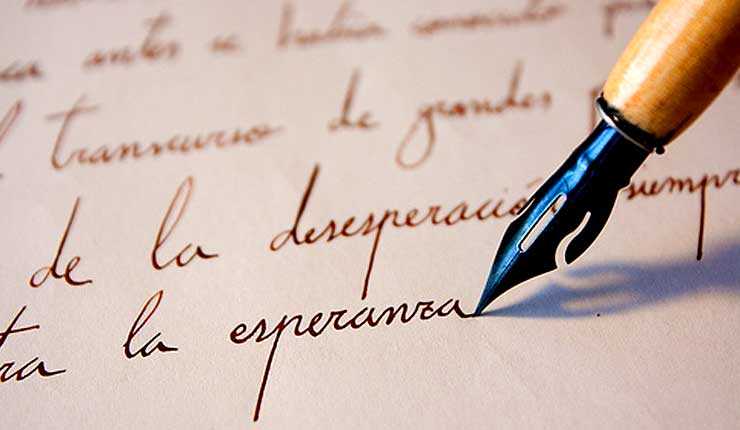 antes se había conocido
transcurso de grandes
de la desesperación siempr
tra la esperanza